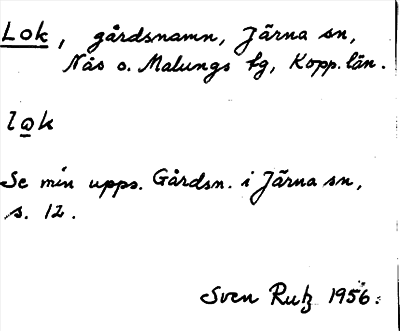 Lok, gårdsnamn, Järna sn,
Nås o. Malungs tg, Kopp. län.
lok
Se min upps. Gårdsn. i Järna sn,
s. 12.
Sven Rutz 1956.